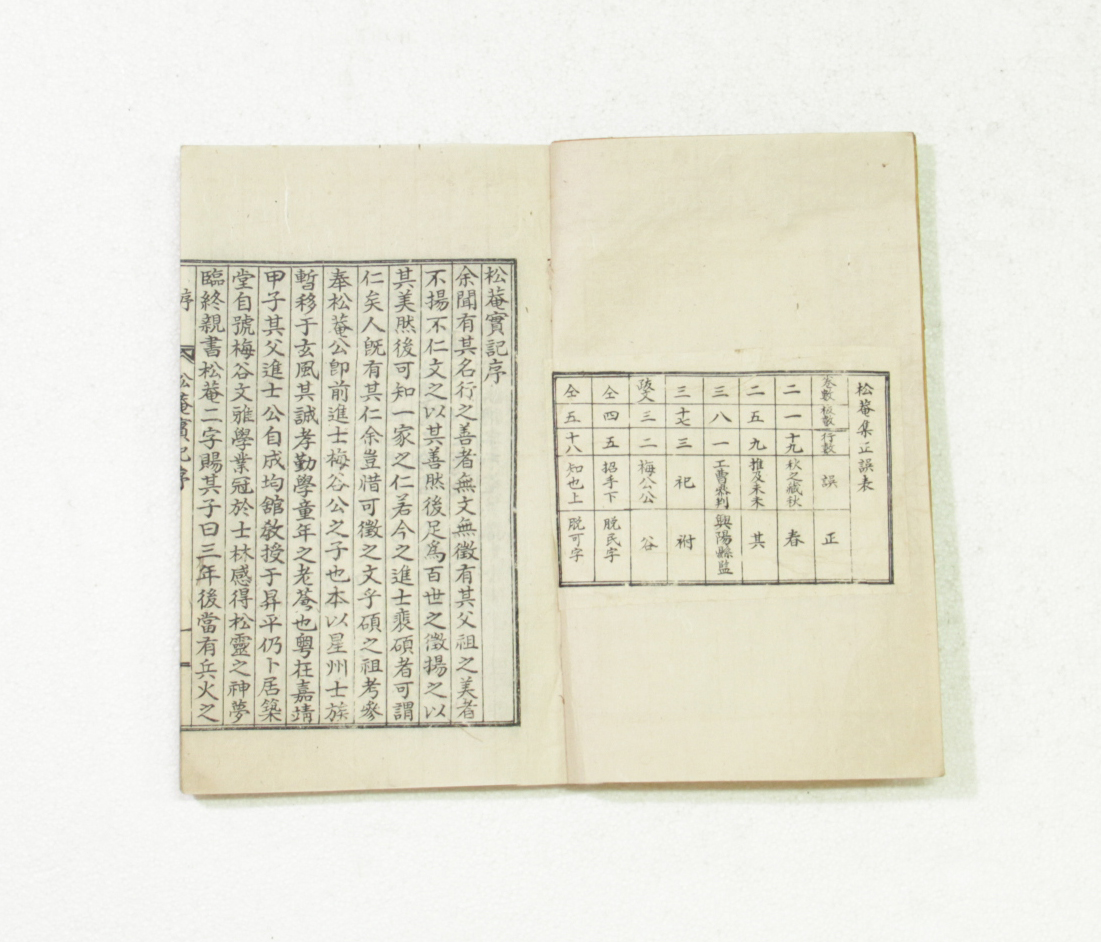 松菴集正誤表
卷數 板數 行數 誤 正
二 一 十九 秋之藏秋 春
二 五 九 推及未未 其
三 八 一 工曹叅判 興陽縣監
三 十七 三 祀 祔
跋文 三 二 梅公公 谷
仝 四 五 招手下 脫民字
仝 五 十八 知也上 脫可字
松菴實記序
余聞有其名行之善者無文無徵有其父祖之美者
不揚不仁文之以其善然後足爲百世之徵揚之以
其美然後可知一家之仁若今之進士裵碩者可謂
仁矣人旣有其仁余豈惜可徵之文乎碩之祖考參
奉松菴公卽前進士梅谷公之子也本以星州士族
暫移于玄風其誠孝勤學童年之老菴也粤在嘉靖
甲子其父進士公自成均舘敎授于昇平仍卜居築
堂自號梅谷文雅學業冠於士林感得松靈之神夢
臨終親書松菴二字賜其子曰三年後當有兵火之
序
松菴實記序 一